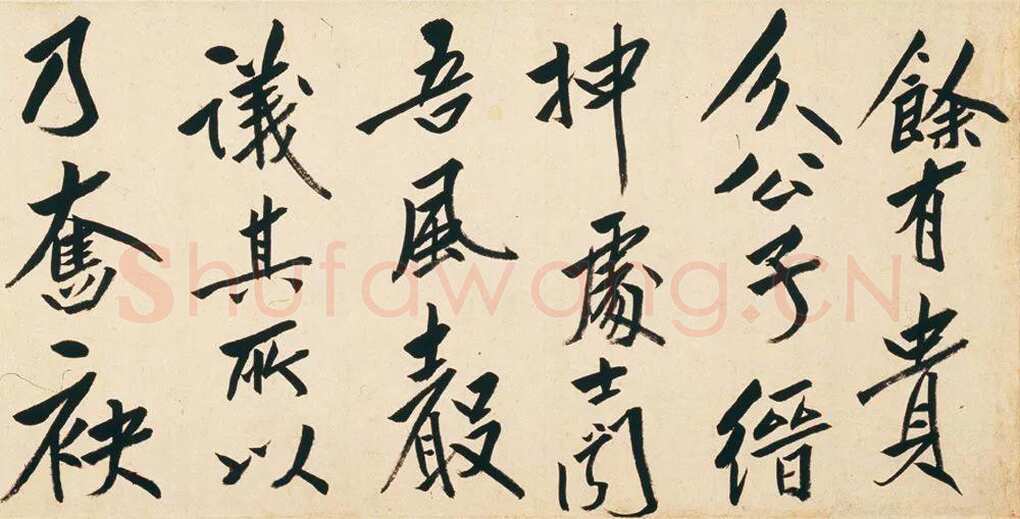 餘有貴
介公子縉
抻處士聞
吾風聲
議其所以
乃奮袂
Shufawang.CN